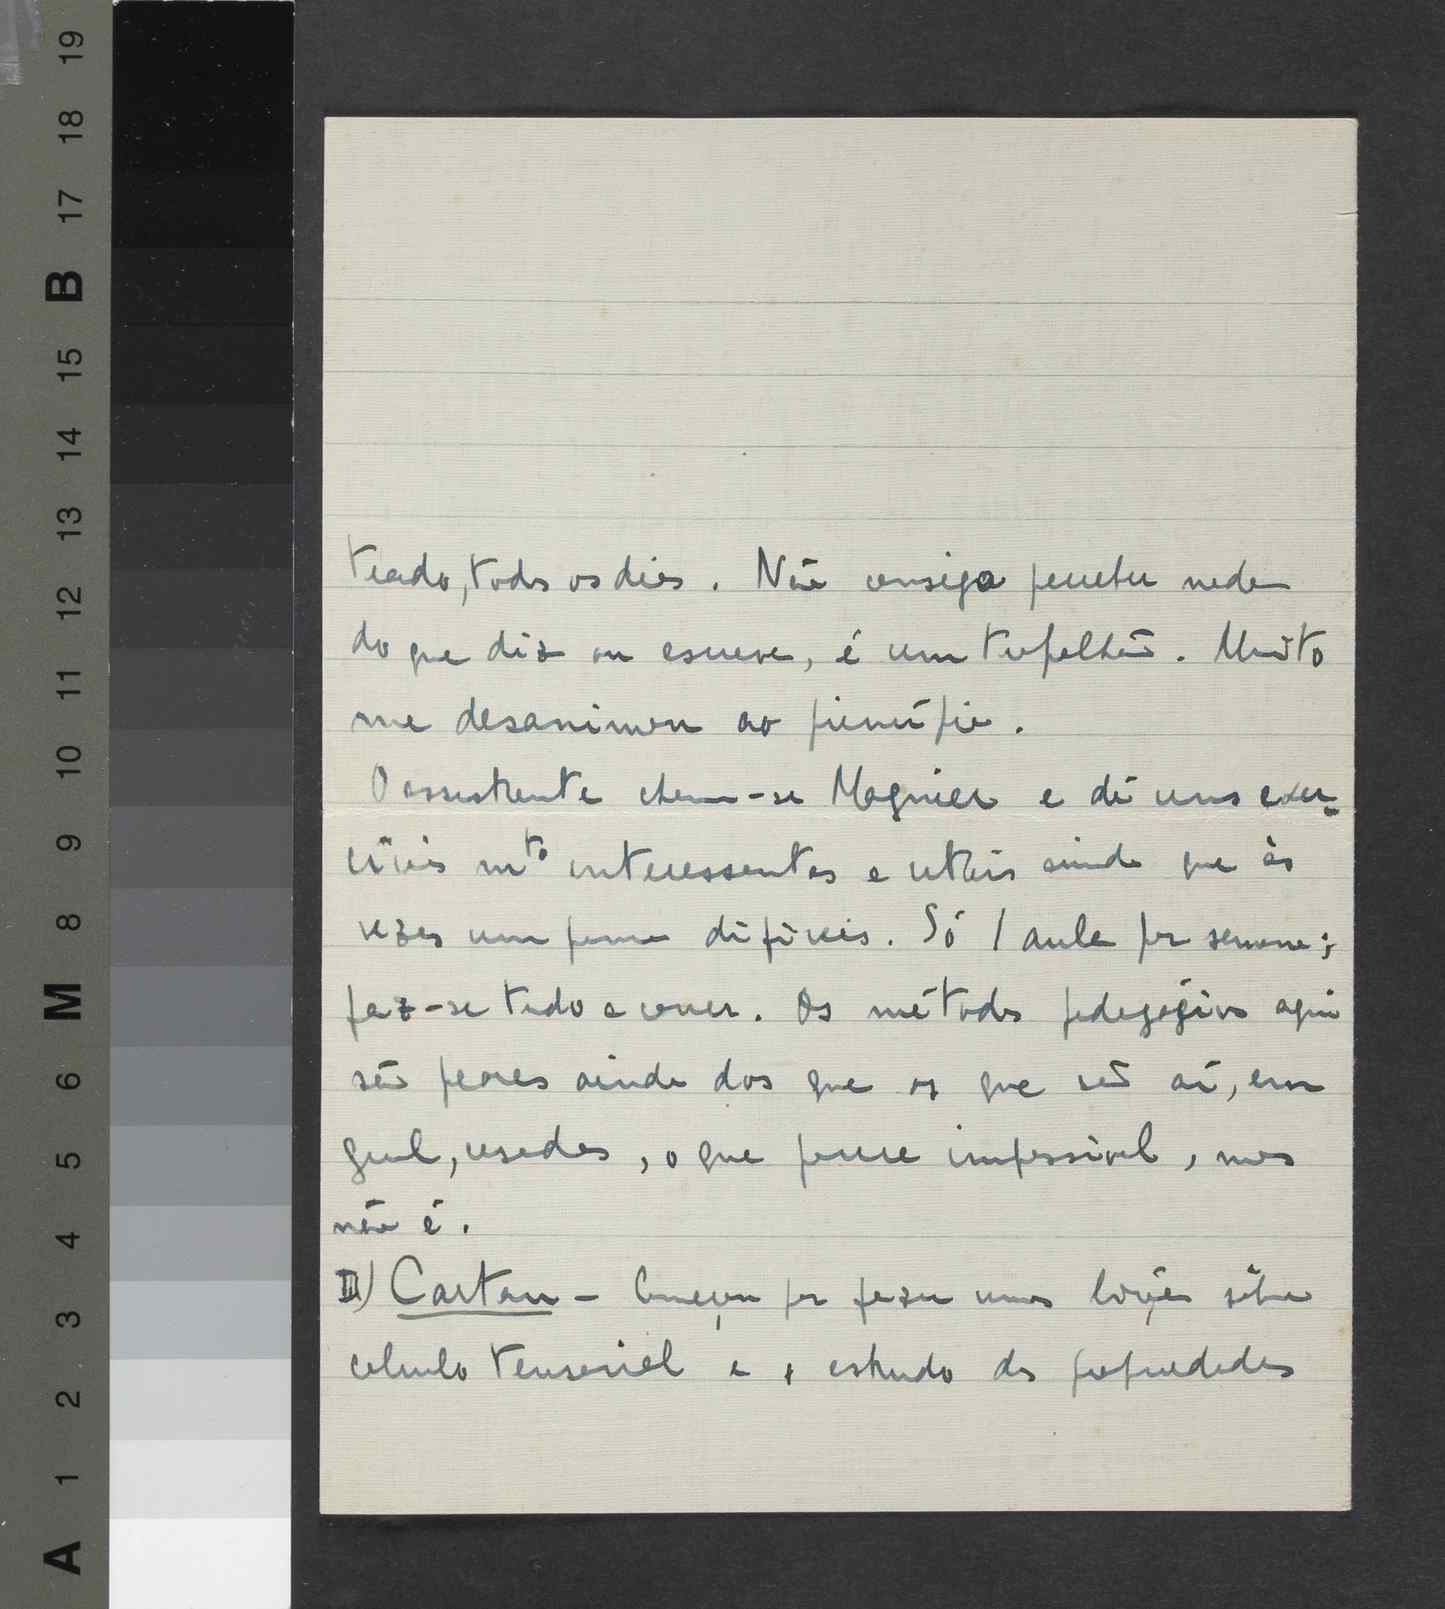 19
18
17
B
15
14
13
12
11
10
9
8
M
6
5
4
3
2
1
A
teado, todos os dias. Não consigo perceber nada
do que diz ou escreve, é um trapalhão. Muito
me desanimou ao princípio.
O assistente chama-se Magnier e dá uns exer-
cícios mto interessantes e uteis ainda que às
vezes um pouco difíceis. Só 1 aula por semana;
faz-se tudo a correr. Os métodos pedagógicos aqui
são peores ainda dos que os que são aí, em
geral, usados, o que parece impossivel, mas
não é.
II) Cartan - Começou por fazer umas lições sôbre
calculo tensorial e o estudo das propriedades